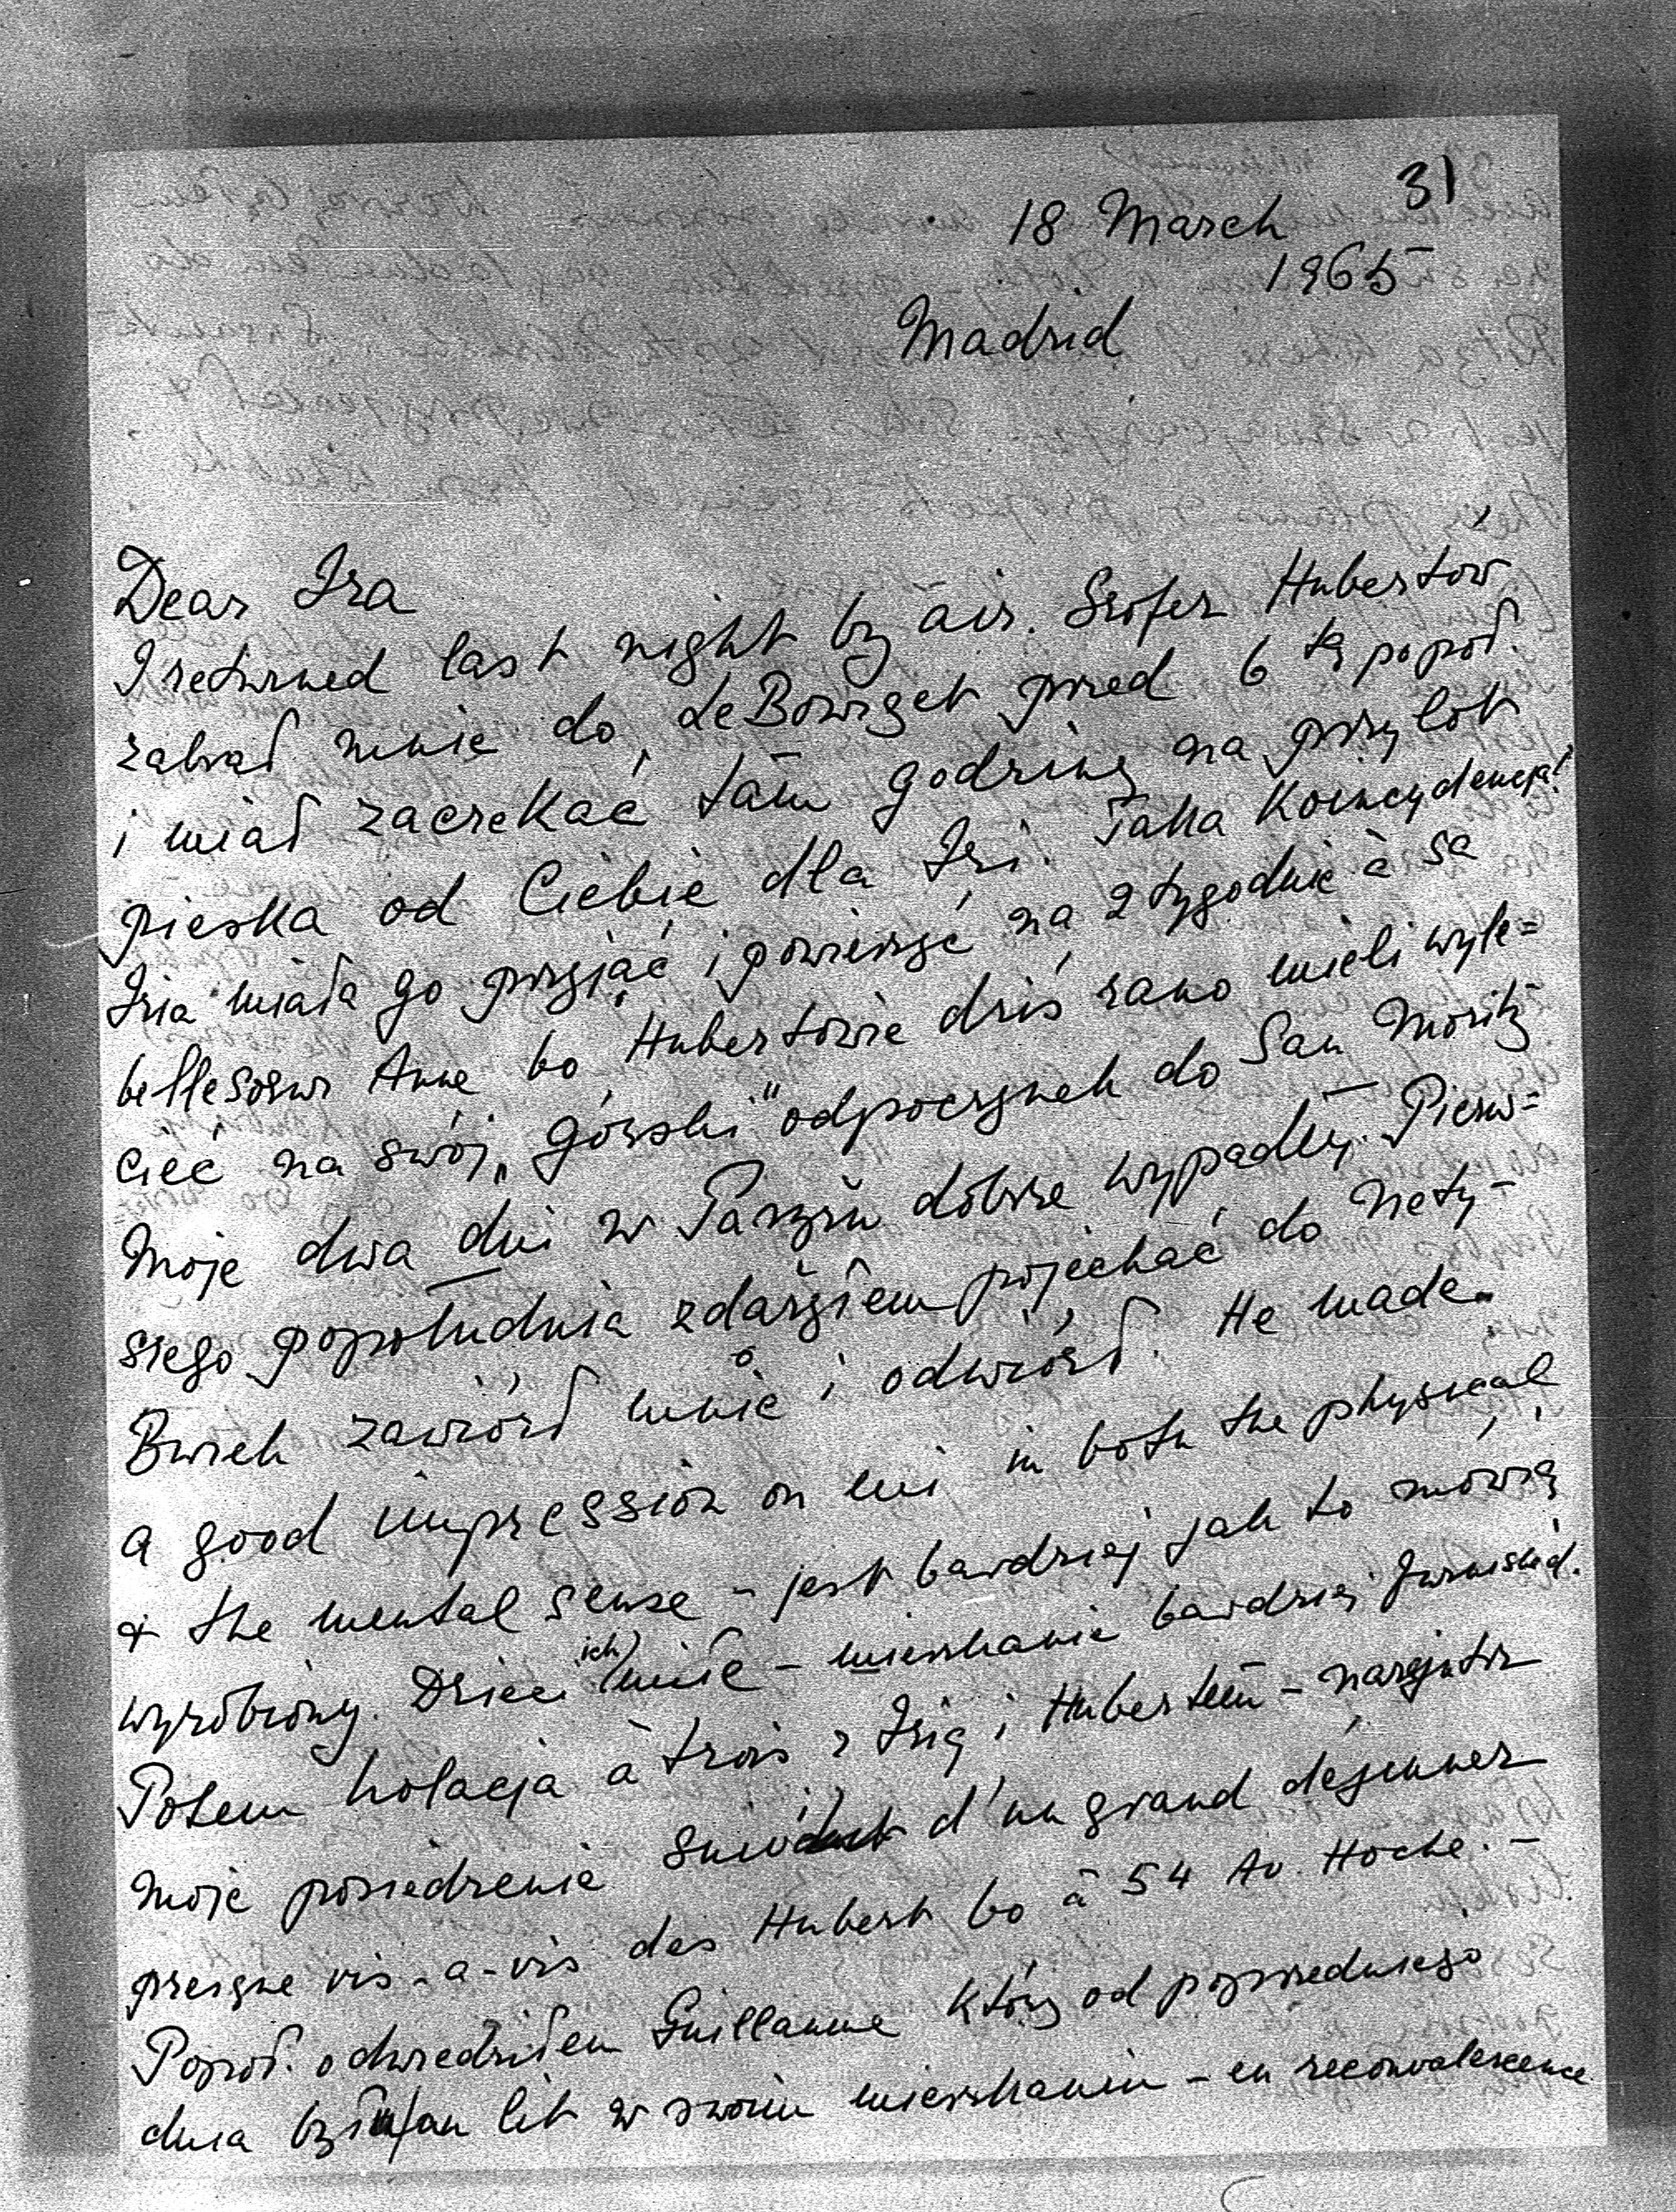 31
18 March
1965
Madrid
Dear Ira
I returned last night by air. Szofer Hubertów
zabrał mnie do LeBourget przed 6 tą popoł.
i miał zaczekać tam godzinę na przylot
pieska od Ciebie dla Izi. Taka Koincydencja!
Izia miała go przyjąć i powierzyć na 2 tygodnie à sa
bellesoeur Anne bo Hubertowie dziś rano mieli wyle=
cieć na swój „górski" odpoczynek do San Moritz
Moje dwa dni w Paryżu dobrze wypadły. Pierw=
szego popołudnia zdążyłem pojechać do Nety –
Burek zawiózł mnie i odwiózł. He made
a good impression on me in both the physical
& the mental sense – jest bardziej jak to mówią
wyrobiony. Dzieci ich miłe – mieszkanie bardziej furnished.
Potem kolacja à trois z Izią i Hubertem – nazajutrz
moje posiedzenie d'un grand dejeuner
presque vis-a-vis des Hubert bo à 54 Av. Hoche. –
Popoł. odwiedziłem Guillaume który od poprzedniego
dnia był au lit w swoim mieszkaniu – en reconvalescence